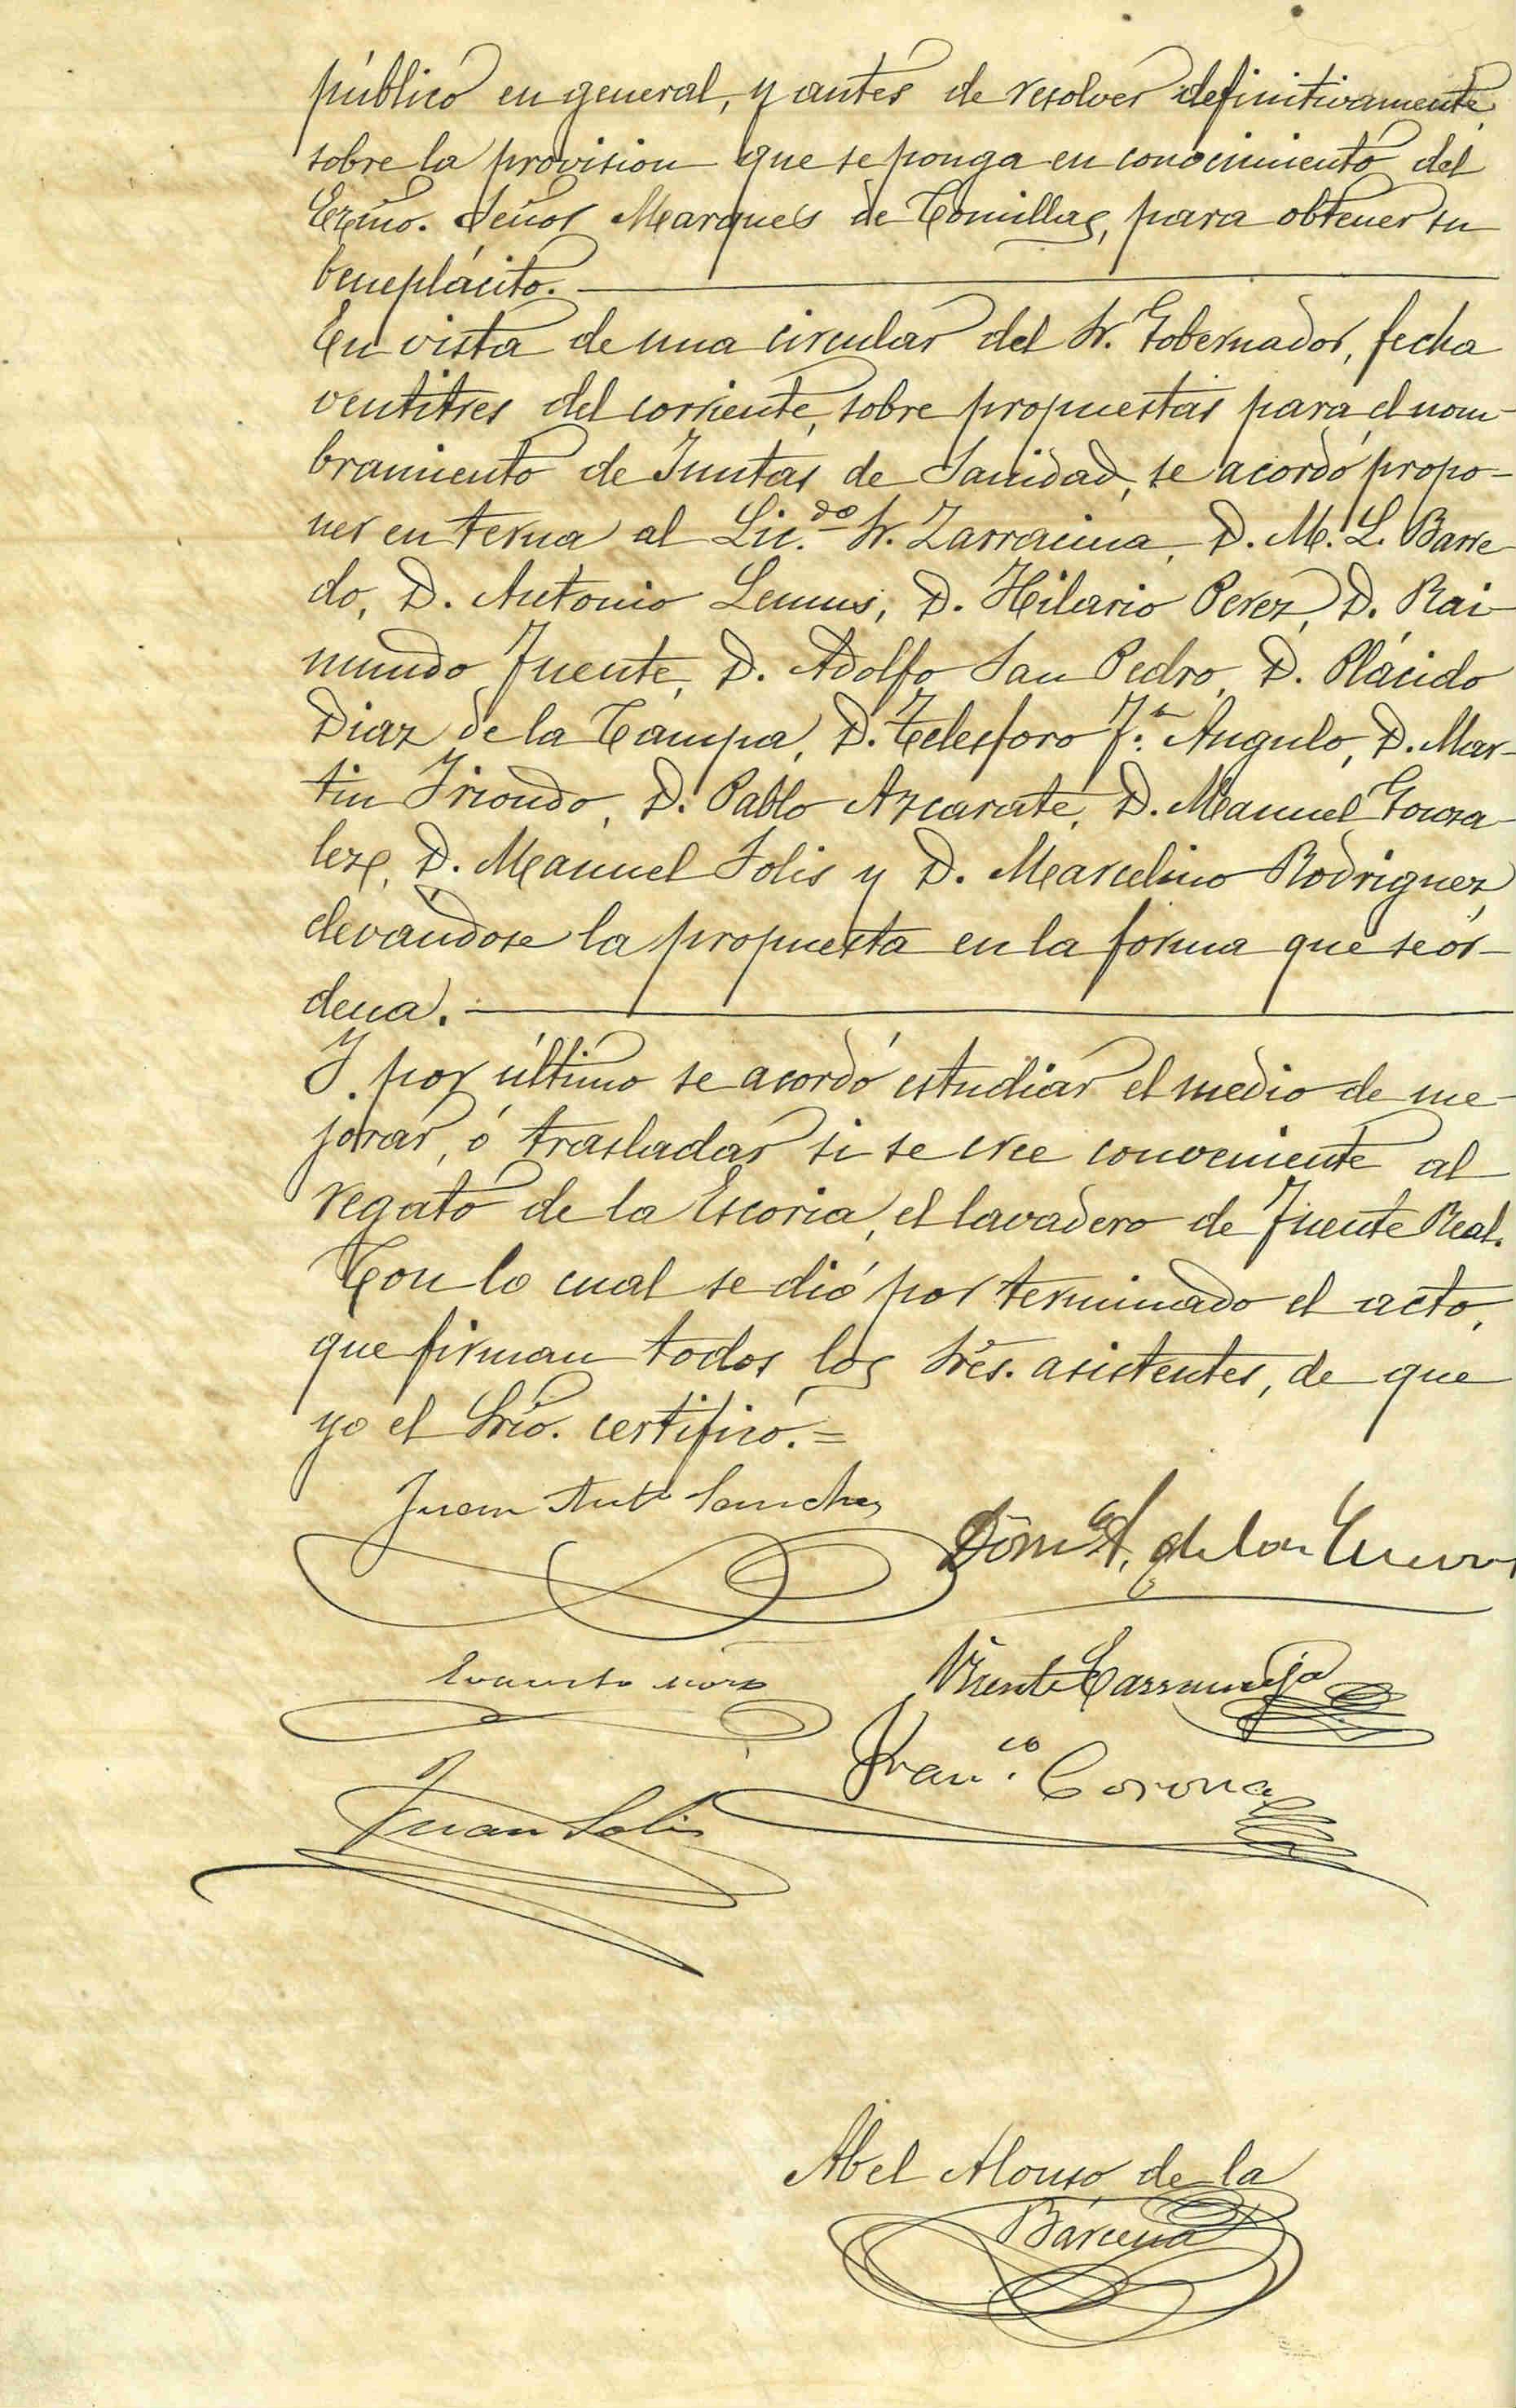 público en general, y antes de resolver definitivamente
sobre la provision que se ponga en conocimiento del
Exmo. Señor Marqués de Comillas, para obtener su
beneplácito.
En vista de una circular del Sr. Gobernador, fecha
ventitres del corriente, sobre propuestas para el nom-
bramiento de Juntas de Sanidad, se acordó propo-
ner en terna al Lic.do Sr. Zarracina, D. M. L. Barre
do, D. Antonio Lemus, D. Hilario Perez, D. Rai-
mundo Fuente, D. Adolfo San Pedro, D. Plácido
Diaz de la Campa, D. Telesforo F.z Angulo, D. Mar-
tin Iriondo, D. Pablo Azcarate, D. Manuel Gonza-
lez, D. Manuel Solis y D. Marcelino Rodriguez,
elevandose la propuesta en la forma que se or-
dena.
Y por último se acordó estudiar el medio de me-
jorar, ó trasladar si se cree conveniente al
regato de la Escoria, el lavadero de Fuente Real.
Con lo cual se dió por terminado el acto,
que firman todos los Sres. asistentes, de que
yo el Srio. certifico.=
Juan Ant.o Sanchez
Dom.go A. de las Cuevas
Vicente
Fran.co Corona
Juan Solis
Abel Alonso de la
Bárcena